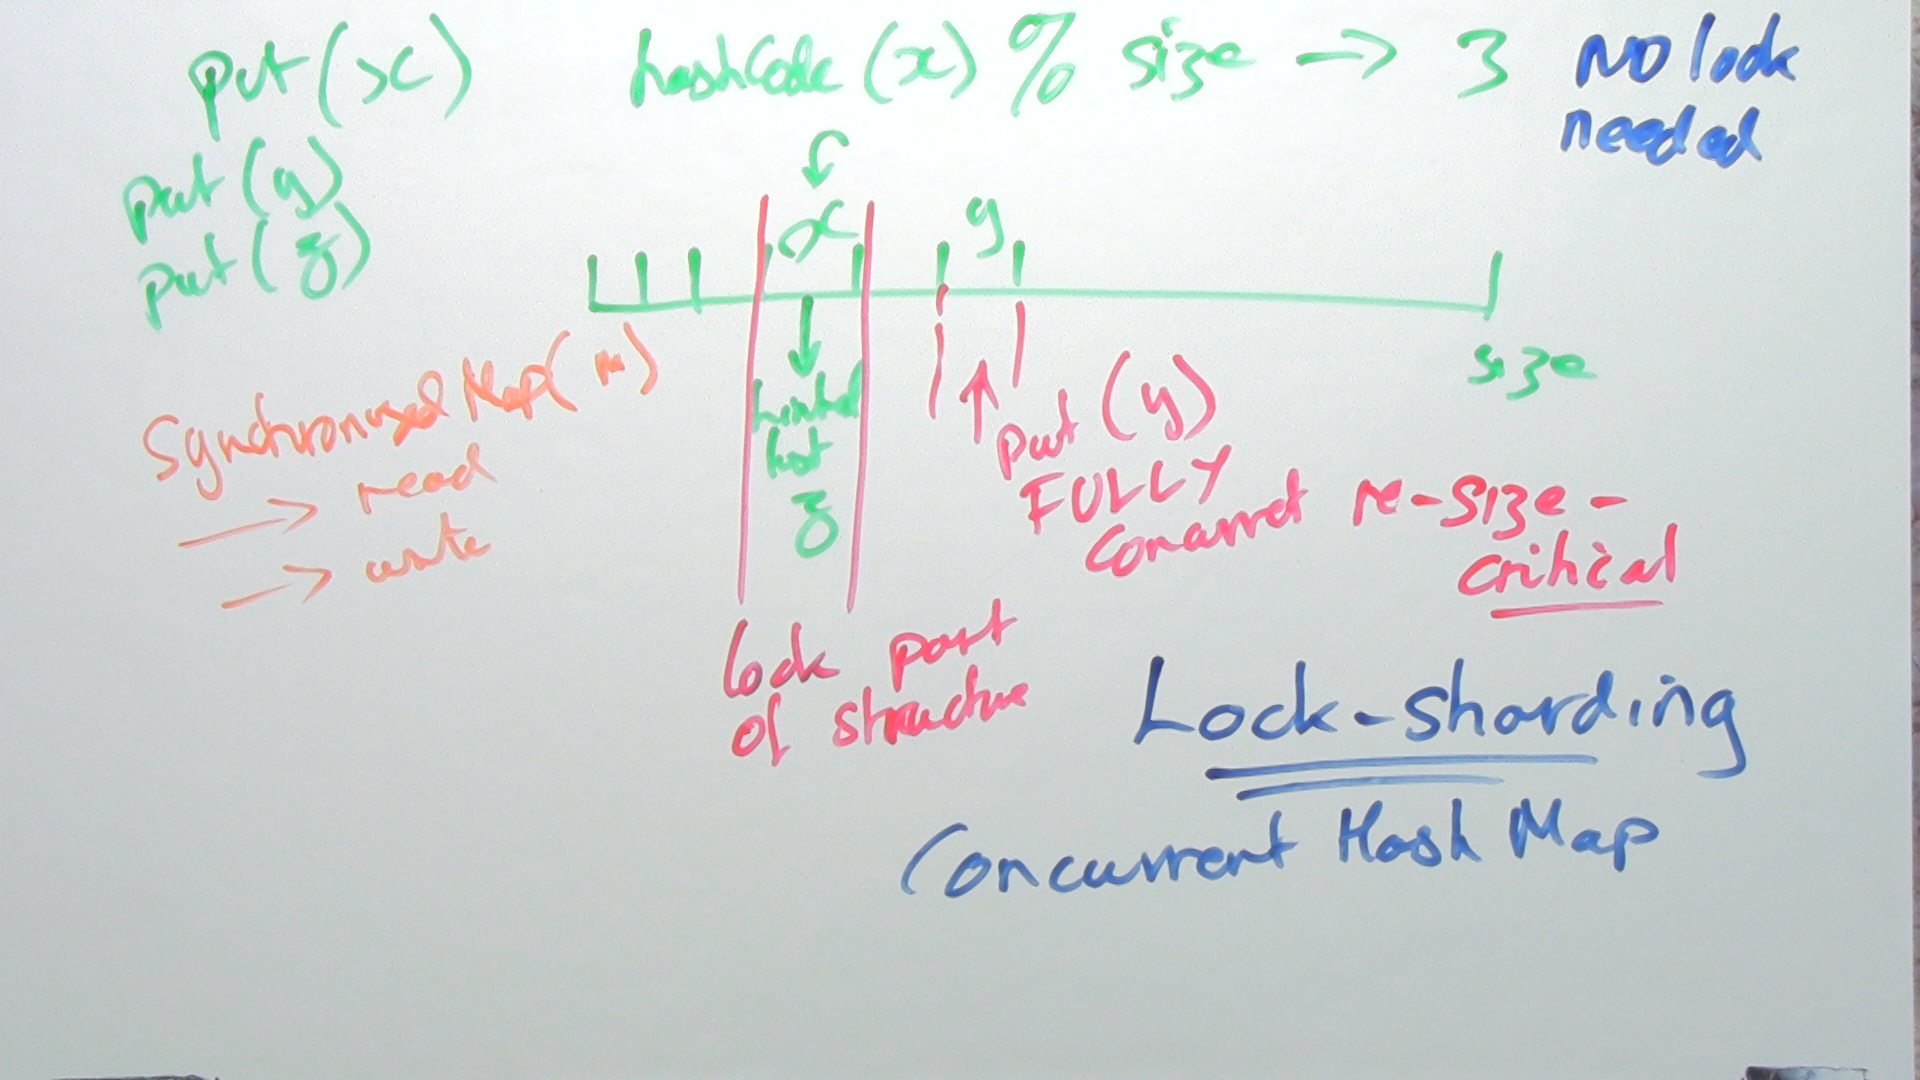 put(x)
hashCode(x) % size → 3
NO lock
needed
put(y)
put(z)
x
y
size
Synchronized Map(m)
→ read
→ write
linked
list
z
put(y)
FULLY
Concurrent
re-size-
critical
lock part
of structure
Lock-sharding
Concurrent Hash Map